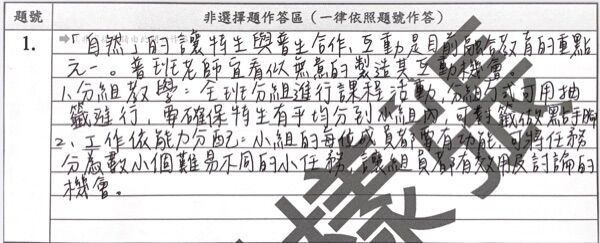 題號 非選擇題作答區（一律依照題號作答）
1. 「自然」的讓特生與普生合作、互動是目前融合教育的重點
之一。普班老師宜看似無意的製造其互動機會。
1、分組教學：全班分組進行課程活動，分組方式可用抽
籤進行，要確保特生有平均分到小組內，可對籤做點手腳
2、工作依能力分配：小組的每位成員都要有功能，可將任務
分為數小個難易不同的小任務，讓組員都有效用及討論的
機會。
樣張